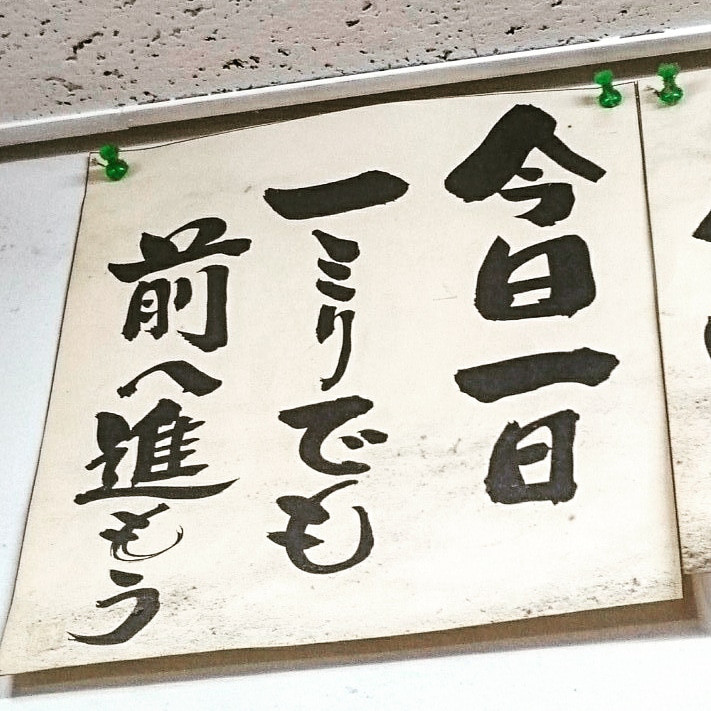 今日一日
一ミリでも
前へ進もう